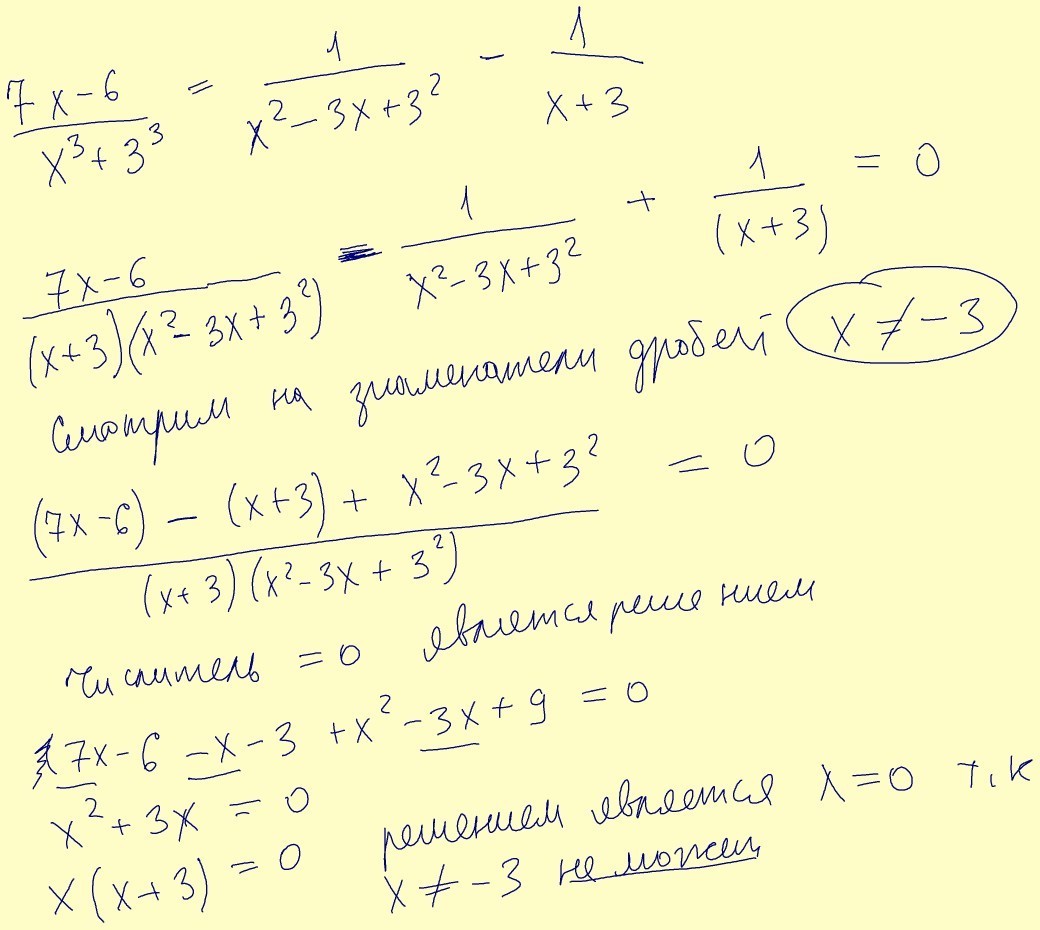 (7x-6)/(x³+3³) = 1/(x²-3x+3²) - 1/(x+3)
(7x-6)/((x+3)(x²-3x+3²)) - 1/(x²-3x+3²) + 1/(x+3) = 0
Смотрим на знаменатели дробей x ≠ -3
((7x-6) - (x+3) + x²-3x+3²)/((x+3)(x²-3x+3²)) = 0
Числитель = 0 является решением
7x-6 -x-3 +x²-3x+9 = 0
x²+3x = 0
x(x+3) = 0
решением является x=0 т.к
x ≠ -3 не может